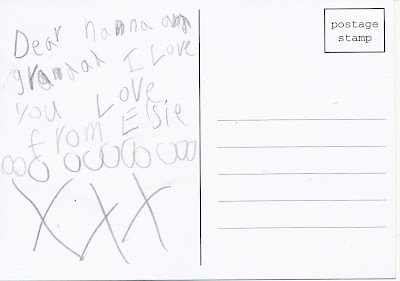 Dear nanna and
grandad I Love
you Love
from Elsie
OOO OOOOO OOO
XXX
postage
stamp